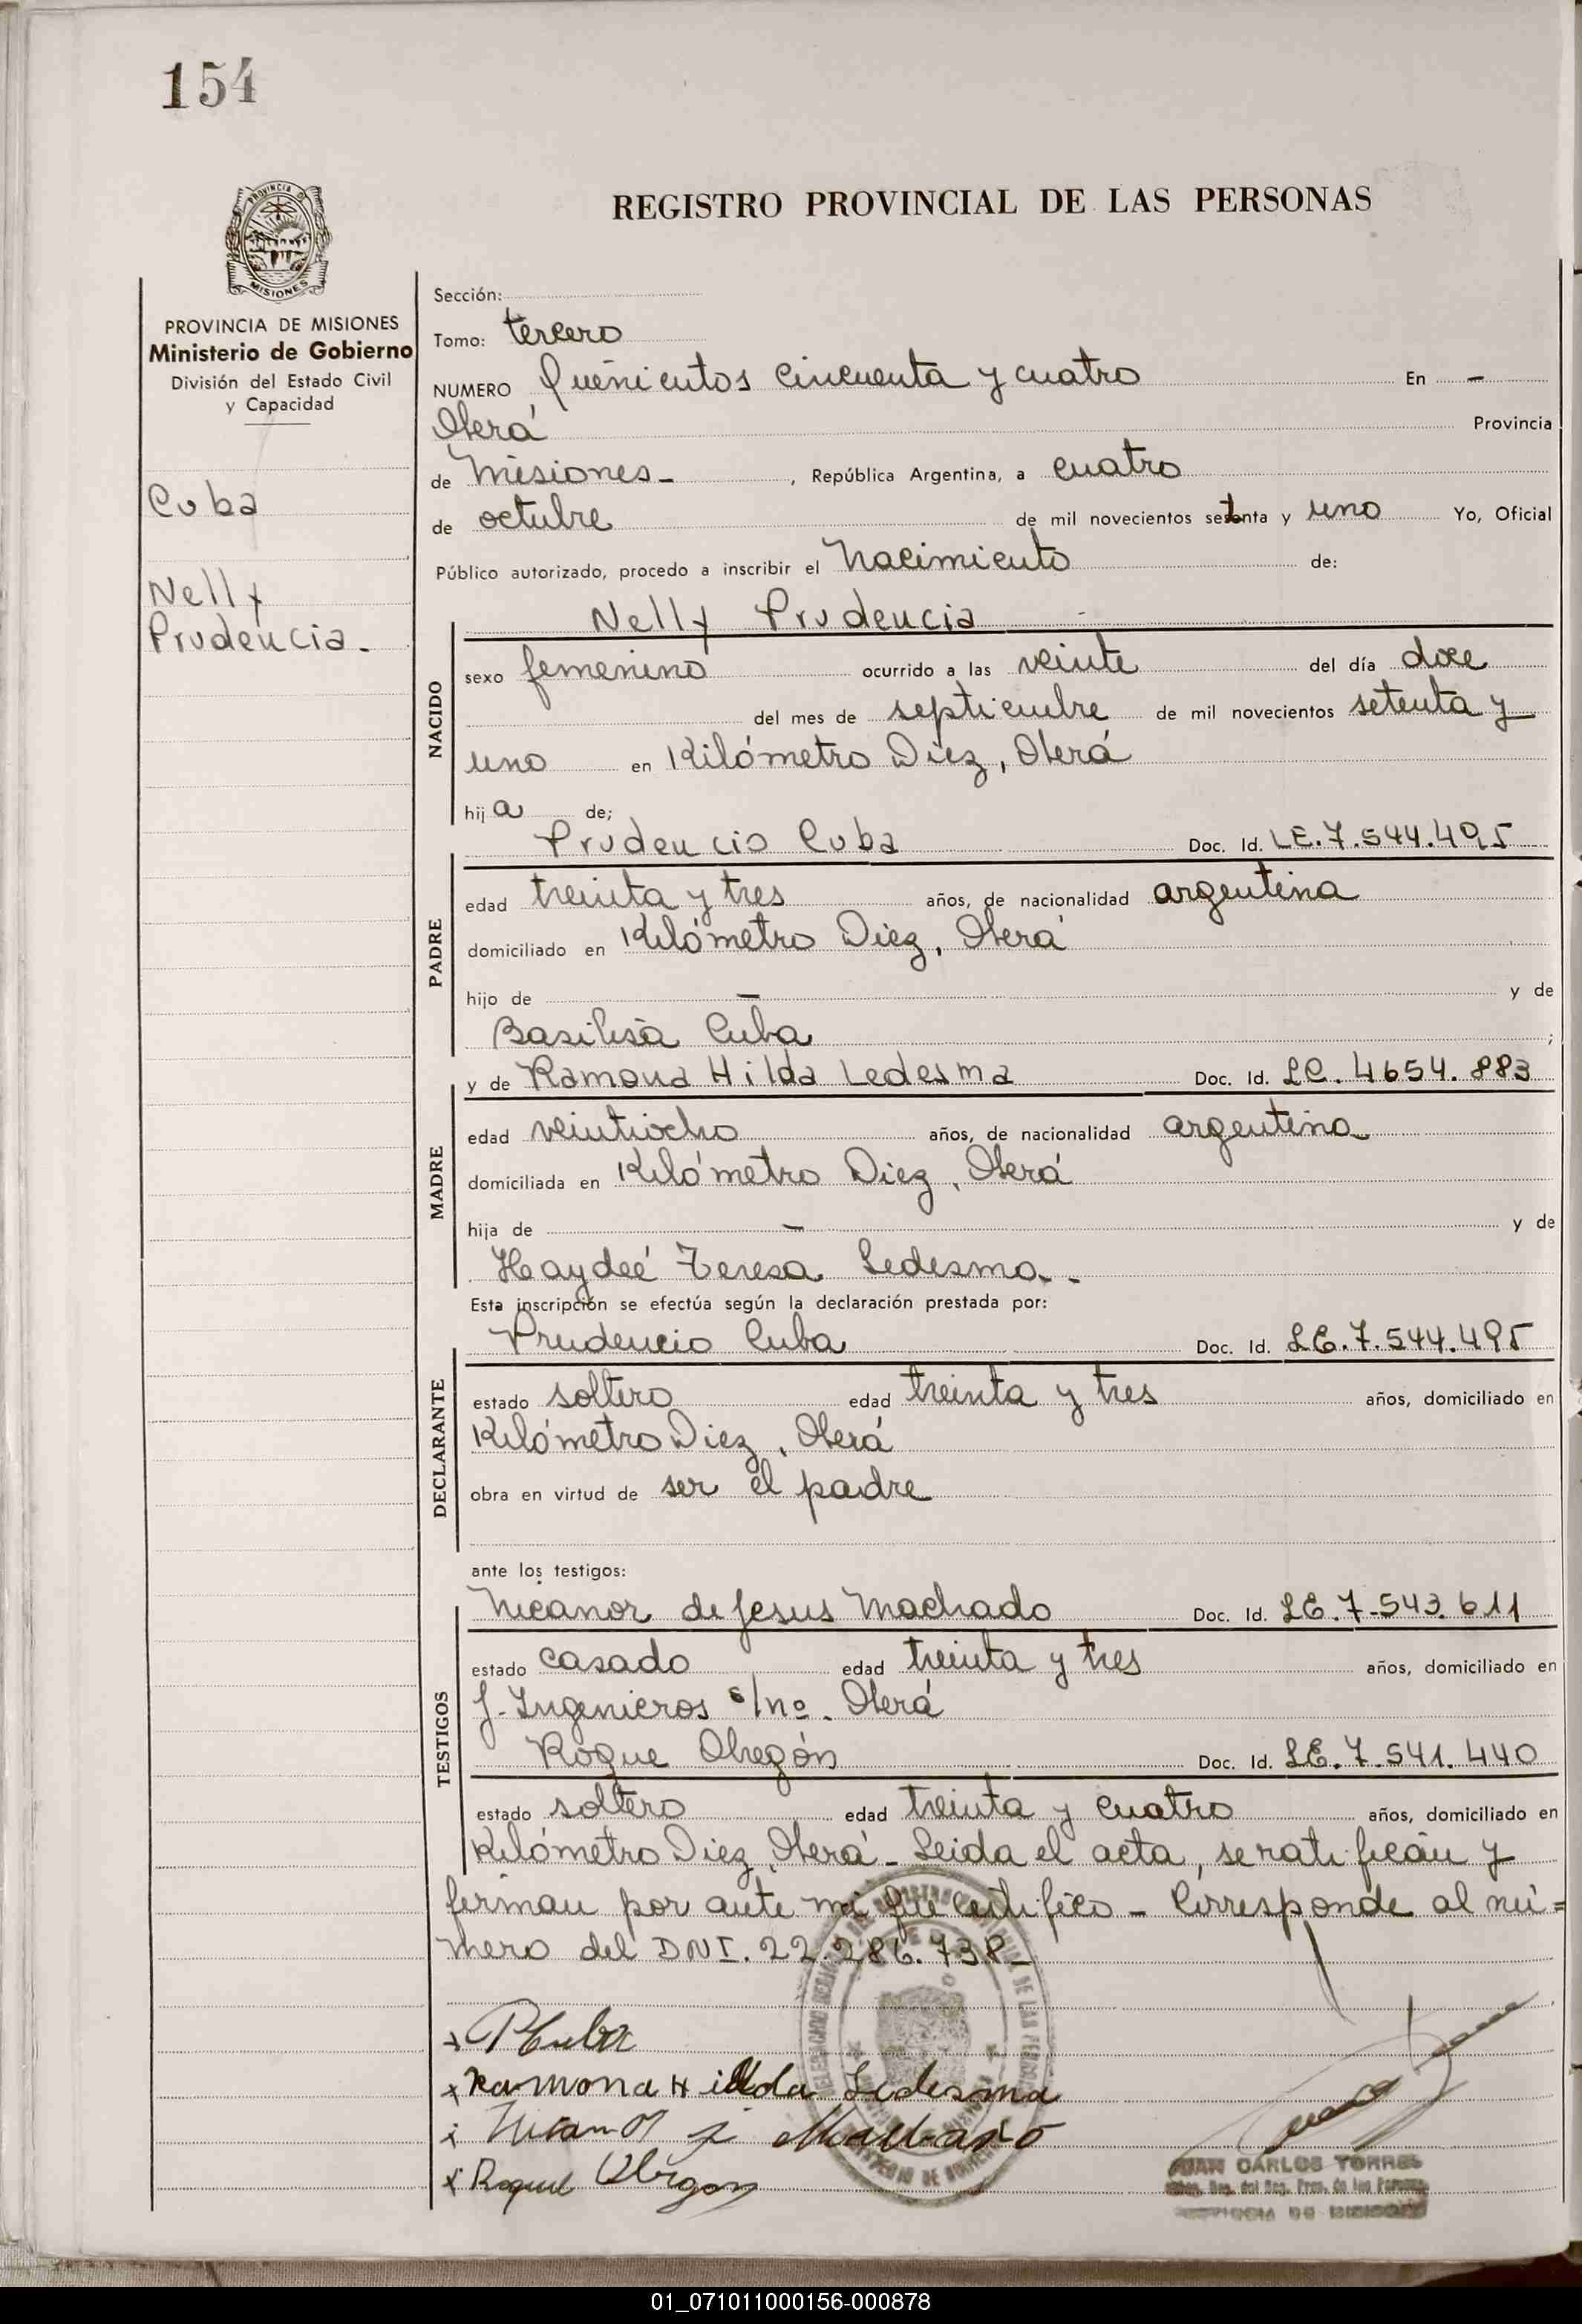 154
PROVINCIA DE
MISIONES
REGISTRO PROVINCIAL DE LAS PERSONAS
PROVINCIA DE MISIONES
Ministerio de Gobierno
División del Estado Civil
y Capacidad
Cuba
Nelly
Prudencia.
Sección:
Tomo: tercero
NUMERO Quinientos cincuenta y cuatro En -
Oberá Provincia
de Misiones - , República Argentina, a cuatro
de octubre de mil novecientos setenta y uno Yo, Oficial
Público autorizado, procedo a inscribir el Nacimiento de:
NACIDO
Nelly Prudencia
sexo femenino ocurrido a las veinte del día doce
del mes de septiembre de mil novecientos setenta y
uno en Kilómetro Diez, Oberá
hija de;
PADRE
Prudencio Cuba Doc. Id. LE. 7.544.495
edad treinta y tres años, de nacionalidad argentina
domiciliado en Kilómetro Diez, Oberá
hijo de — y de
Basilisa Cuba ;
MADRE
y de Ramona Hilda Ledesma Doc. Id. LC. 4654.883
edad veintiocho años, de nacionalidad argentina
domiciliada en Kilómetro Diez, Oberá
hija de — y de
Haydeé Teresa Ledesma.-
Esta inscripción se efectúa según la declaración prestada por:
DECLARANTE
Prudencio Cuba Doc. Id. LE. 7.544.495
estado soltero edad treinta y tres años, domiciliado en
Kilómetro Diez, Oberá
obra en virtud de ser el padre
ante los testigos:
TESTIGOS
Nicanor de Jesus Machado Doc. Id. LE. 7.543.611
estado casado edad treinta y tres años, domiciliado en
J. Ingenieros s/nº. Oberá
Roque Obregón Doc. Id. LE. 7.541.440
estado soltero edad treinta y cuatro años, domiciliado en
Kilómetro Diez, Oberá - Leida el acta, se ratifican y
firman por ante mi que certifico - Corresponde al nú=
mero del DNI. 22.286.738-
x PCuba
x Ramona Hilda Ledesma
x Nicanor J Machado
x Roque Obregon
JUAN CARLOS TORRES
01_071011000156-000878